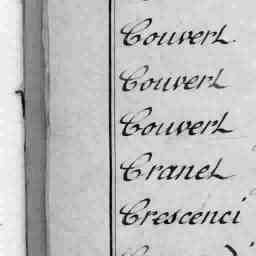 Couvert
Couvert
Couvert
Cranet
Crescenci